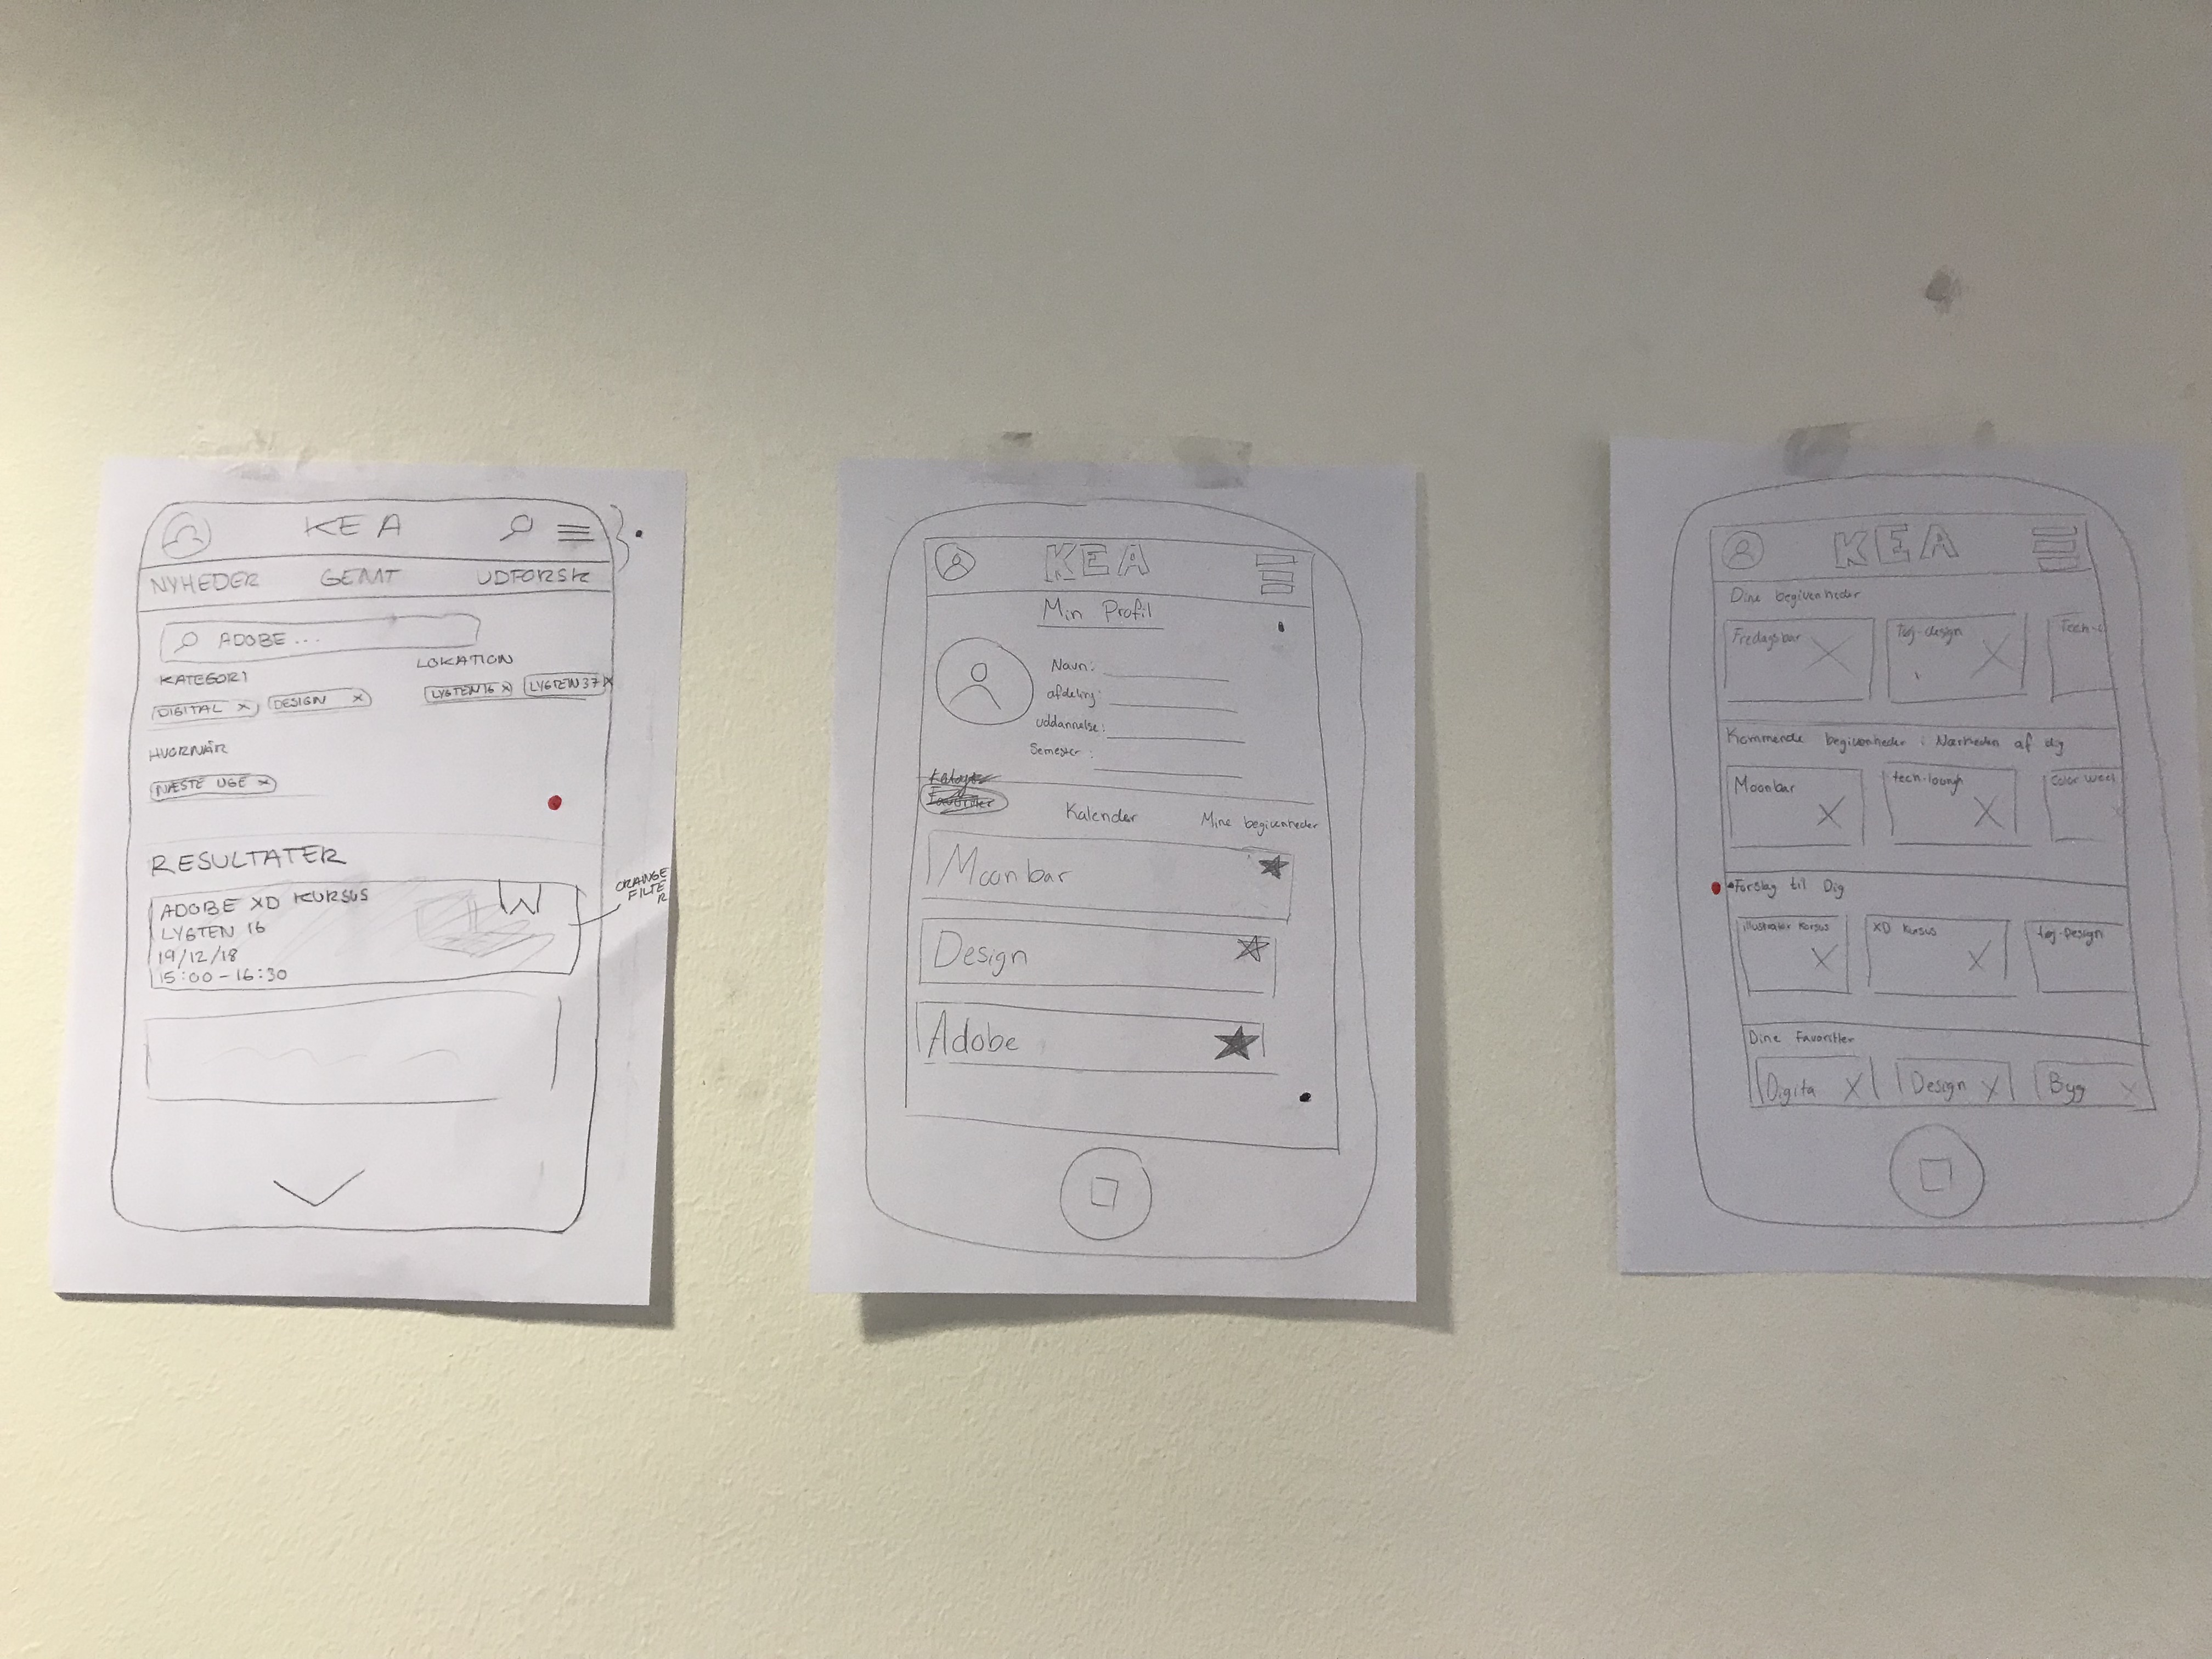 KEA
NYHEDER GEMT UDFORSK
ADOBE ...
KATEGORI LOKATION
DIGITAL x DESIGN x LYGTEN 16 x LYGTEN 37 x
HVORNÅR
NÆSTE UGE x
RESULTATER
ADOBE XD KURSUS
LYGTEN 16
19/12/18
15:00-16:30
ORANGE
FILTE
R
KEA
Min Profil
Navn:
afdeling:
uddannelse:
Semester:
Favoritter Kalender Mine begivenheder
Moonbar
Design
Adobe
KEA
Dine begivenheder
Fredagsbar tøj-design Tech-
Kommende begivenheder i Nærheden af dig
Moonbar tech-loungh
Forslag til Dig
illustrator Kursus XD Kursus tøj-Design
Dine Favoritter
Digita Design Byg